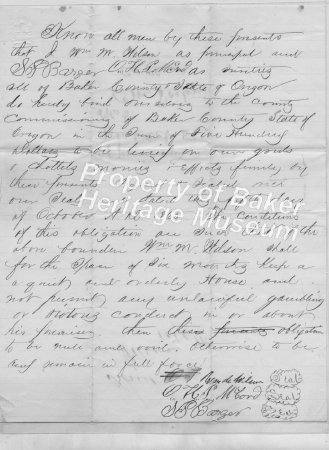 Know all men by these presents
that I Wm M. Wilson as principal and
S B Barger as sureties
all of Baker County & State of Oregon
do hereby bind ourselves to the County
Commissioners of Baker County State of
Oregon in the Sum of Five Hundred
Dollars to be levied on our goods
& Chattels moneys & Effects firmly by
these presents
our Seals dated
of October A
of this obligation are the
above bounden Wm M Wilson Shall
for the Space of Six months keep a
a quiet and orderly House and
not permit any unlawful gambling
or Riotous conduct, in or about
his premises then these presents obligation
to be null and void. Otherwise to be
and remain in full force
Wm M Wilson Seal
McCord Seal
S B Barger Seal
Property of Baker
Heritage Museum